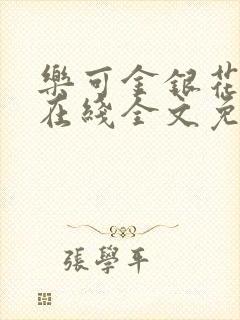 樂可金銀花
在綫全文免
張學平